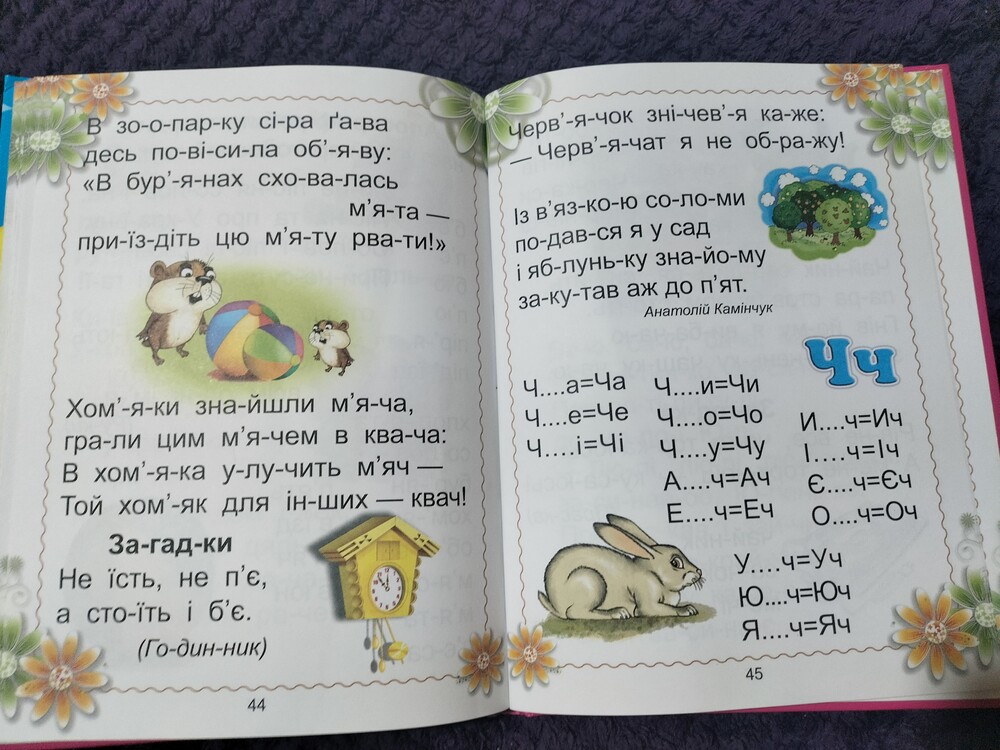 В зо-о-пар-ку сі-ра ґа-ва
десь по-ві-си-ла об’-я-ву:
«В бур’-я-нах схо-ва-лась
м’я-та —
при-їз-діть цю м’я-ту рва-ти!»
Хом’-я-ки зна-йшли м’я-ча,
гра-ли цим м’я-чем в ква-ча:
В хом’-я-ка у-лу-чить м’яч —
Той хом’-як для ін-ших — квач!
За-гад-ки
Не їсть, не п’є,
а сто-їть і б’є.
(Го-дин-ник)
44
Черв’-я-чок зні-чев’-я ка-же:
— Черв’-я-чат я не об-ра-жу!
Із в’яз-ко-ю со-ло-ми
по-дав-ся я у сад
і яб-лунь-ку зна-йо-му
за-ку-тав аж до п’ят.
Анатолій Камінчук
Чч
Ч....а=Ча
Ч....е=Че
Ч....і=Чі
Ч....и=Чи
Ч....о=Чо
Ч....у=Чу
А....ч=Ач
Е....ч=Еч
И....ч=Ич
І....ч=Іч
Є....ч=Єч
О....ч=Оч
У....ч=Уч
Ю....ч=Юч
Я....ч=Яч
45